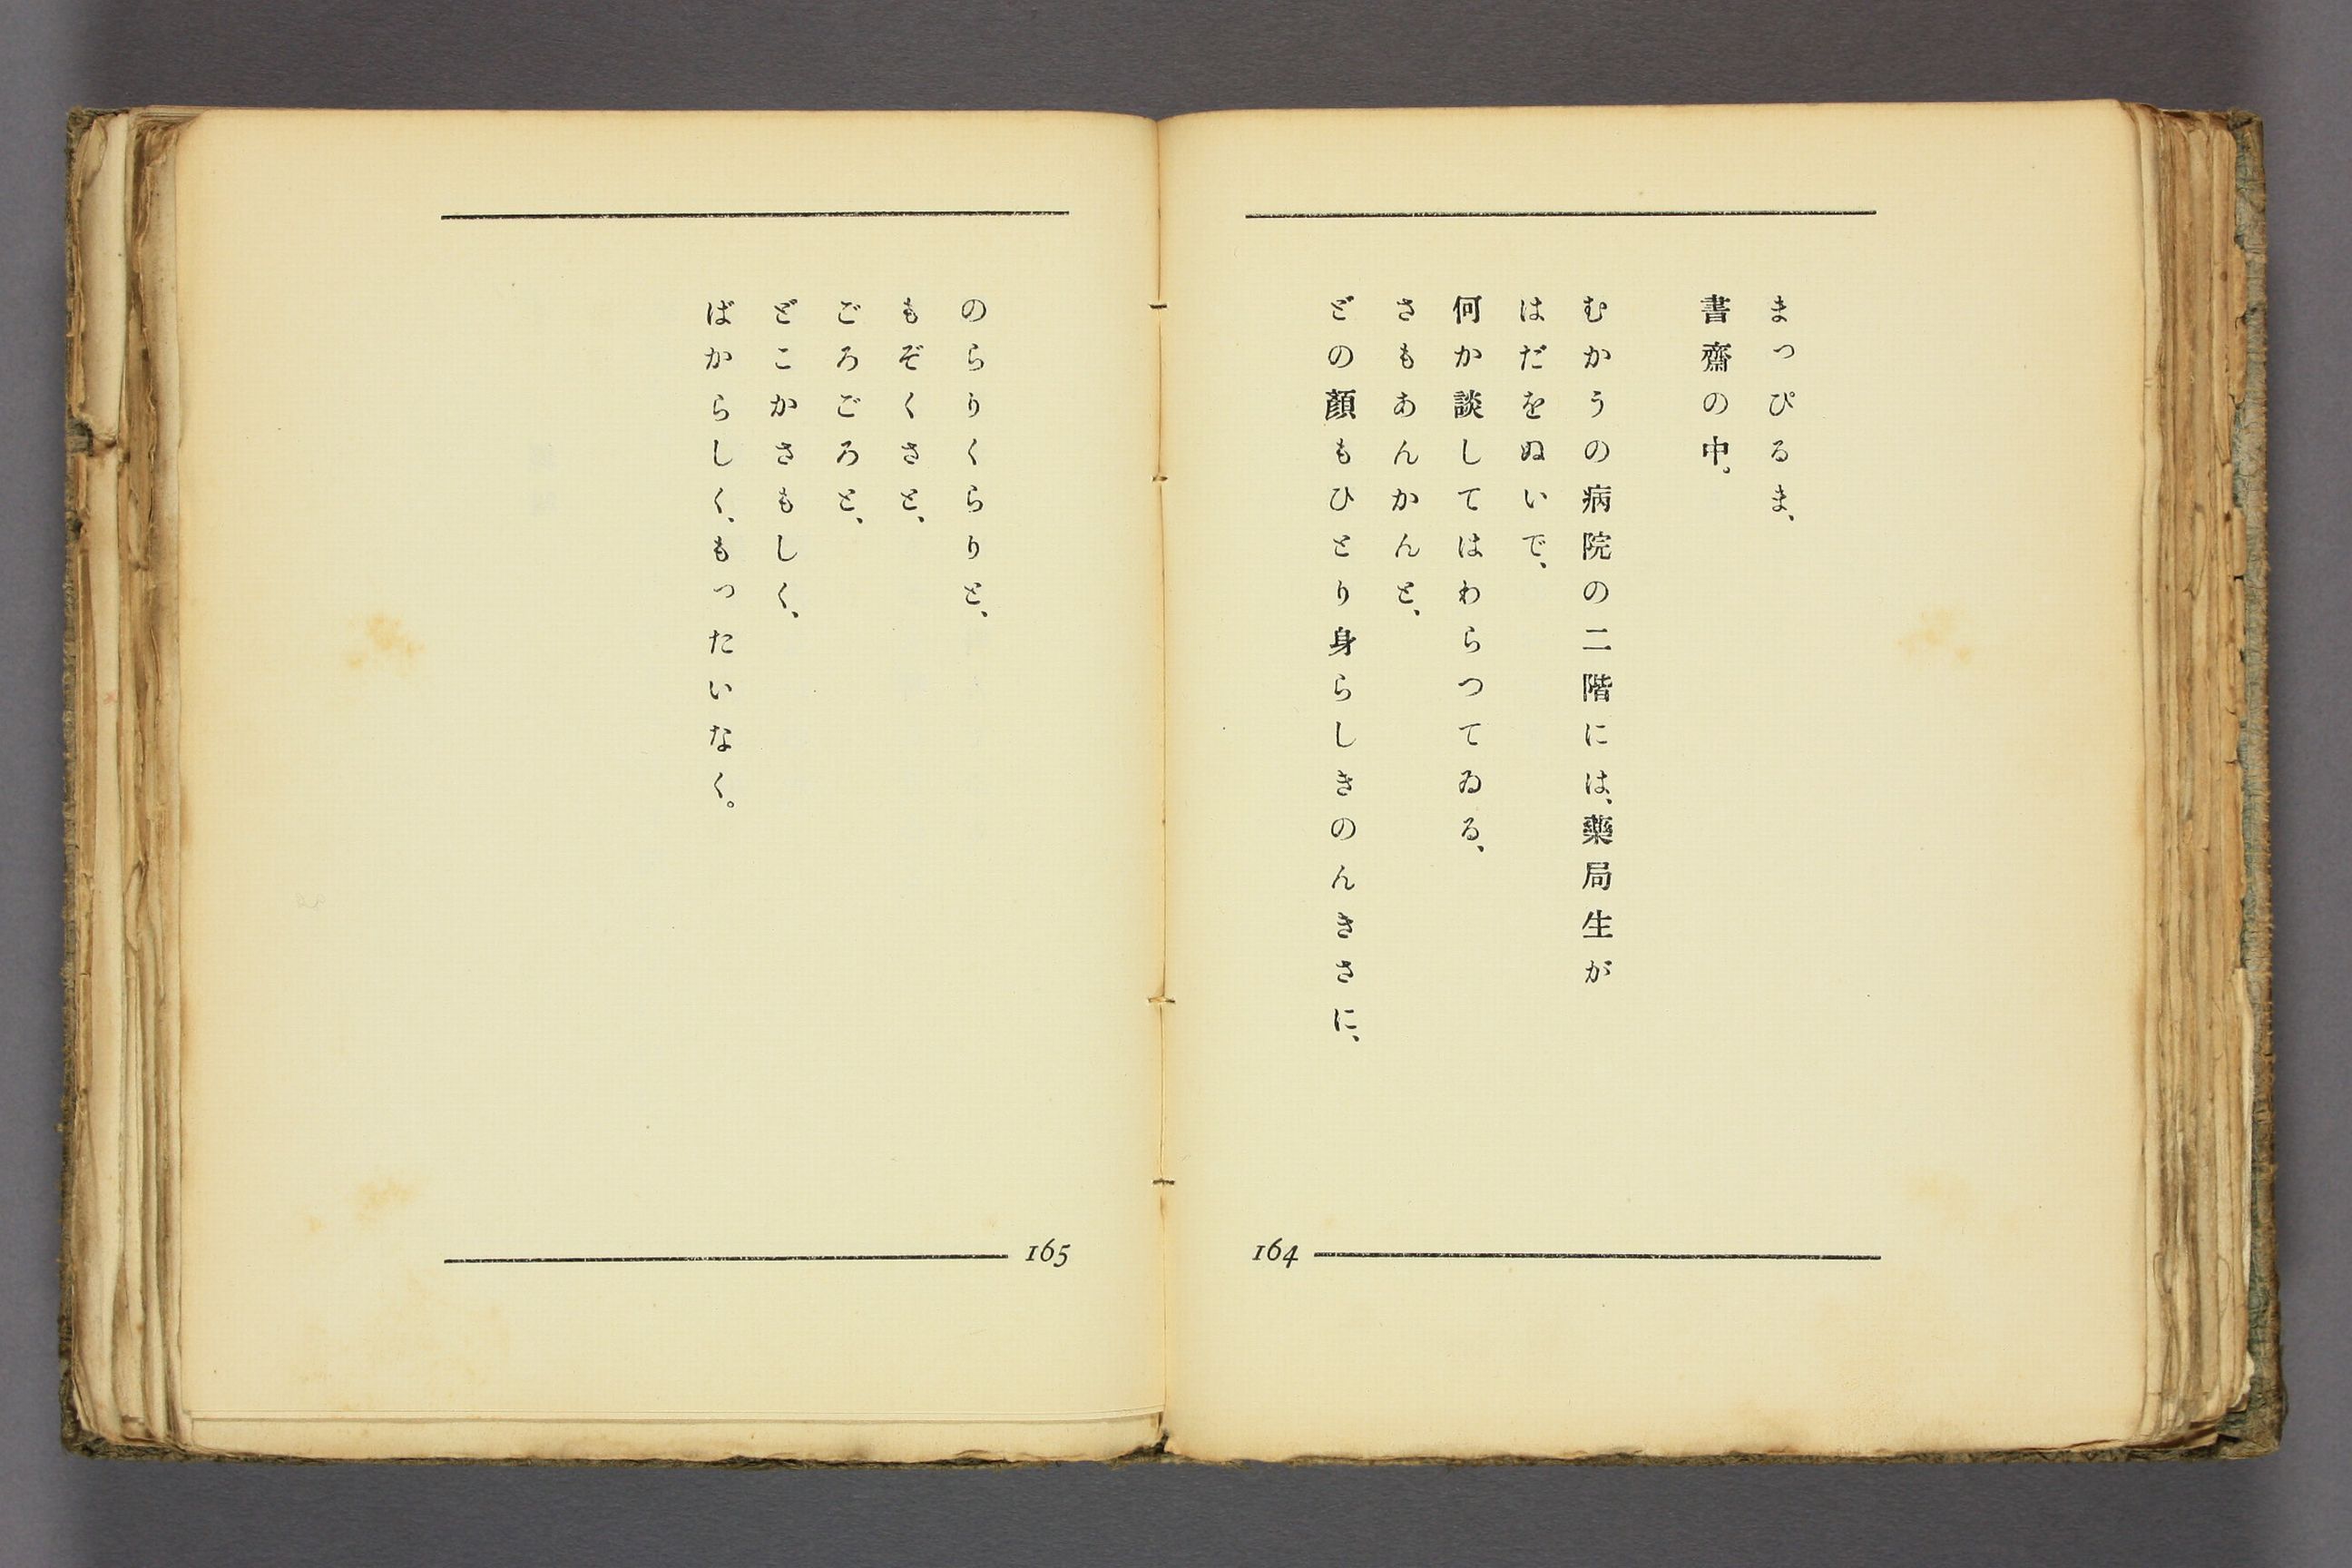 まっぴるま、
書齋の中。
むかうの病院の二階には、藥局生が
はだをぬいで、
何か談してはわらつてゐる、
さもあんかんと、
どの顔もひとり身らしきのんきさに、
164
のらりくらりと、
もぞくさと、
ごろごろと、
どこかさもしく、
ばからしく、もったいなく。
165